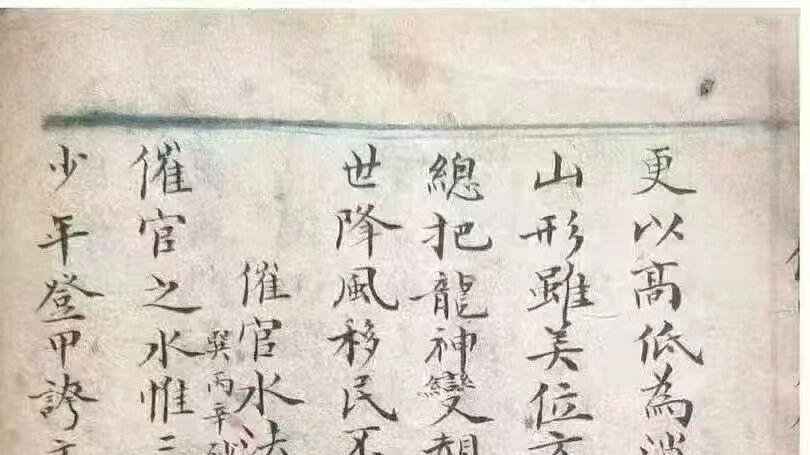 更以高低為
山形雖美位
總把龍神變
世降風移民不
催官水法
巽丙辛
催官之水惟三
少年登甲誇